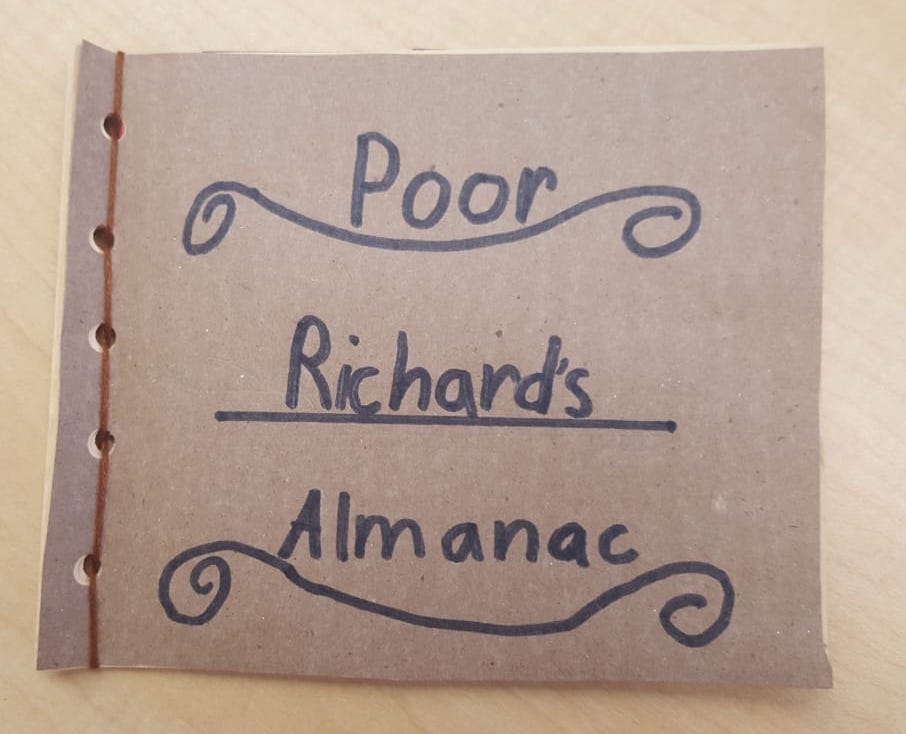 Poor
Richard's
Almanac